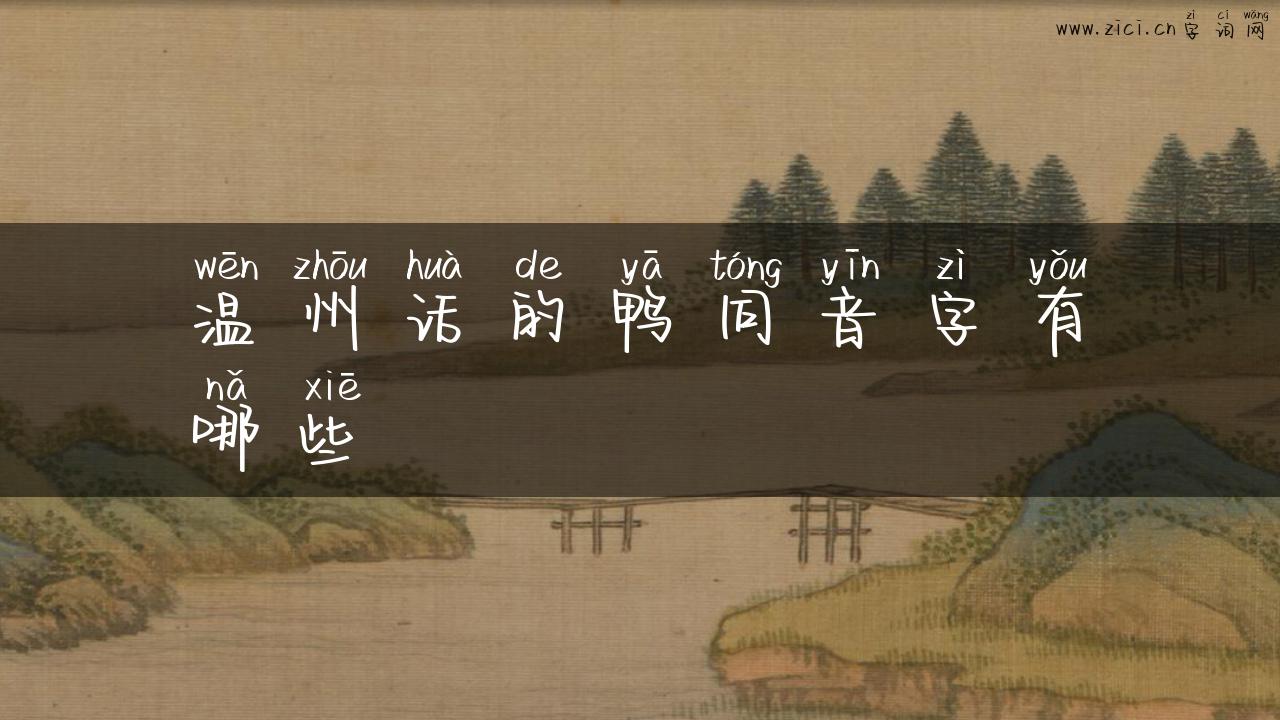 zì cí wǎng
www.zici.cn 字词网
wēn zhōu huà de yā tóng yīn zì yǒu
温州话的鸭同音字有
nǎ xiē
哪些